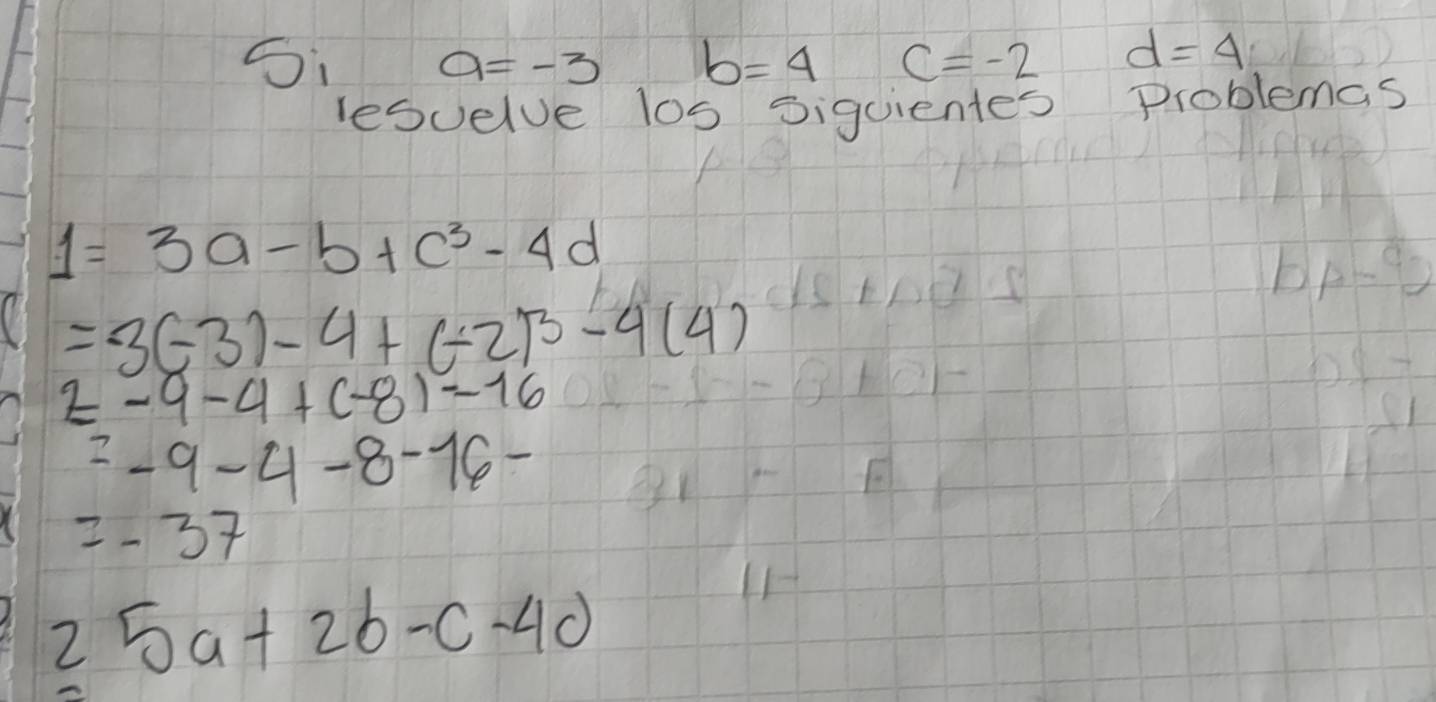 Si a=-3 b=4 c=-2 d=4
resuelve los siguientes problemas
1= 3a-b+c³-4d
=3(-3)-4+(-2)³-4(4)
= -9-4+(-8)-16
= -9-4-8-16-
=-37
2 5a+2b-c-4d
=